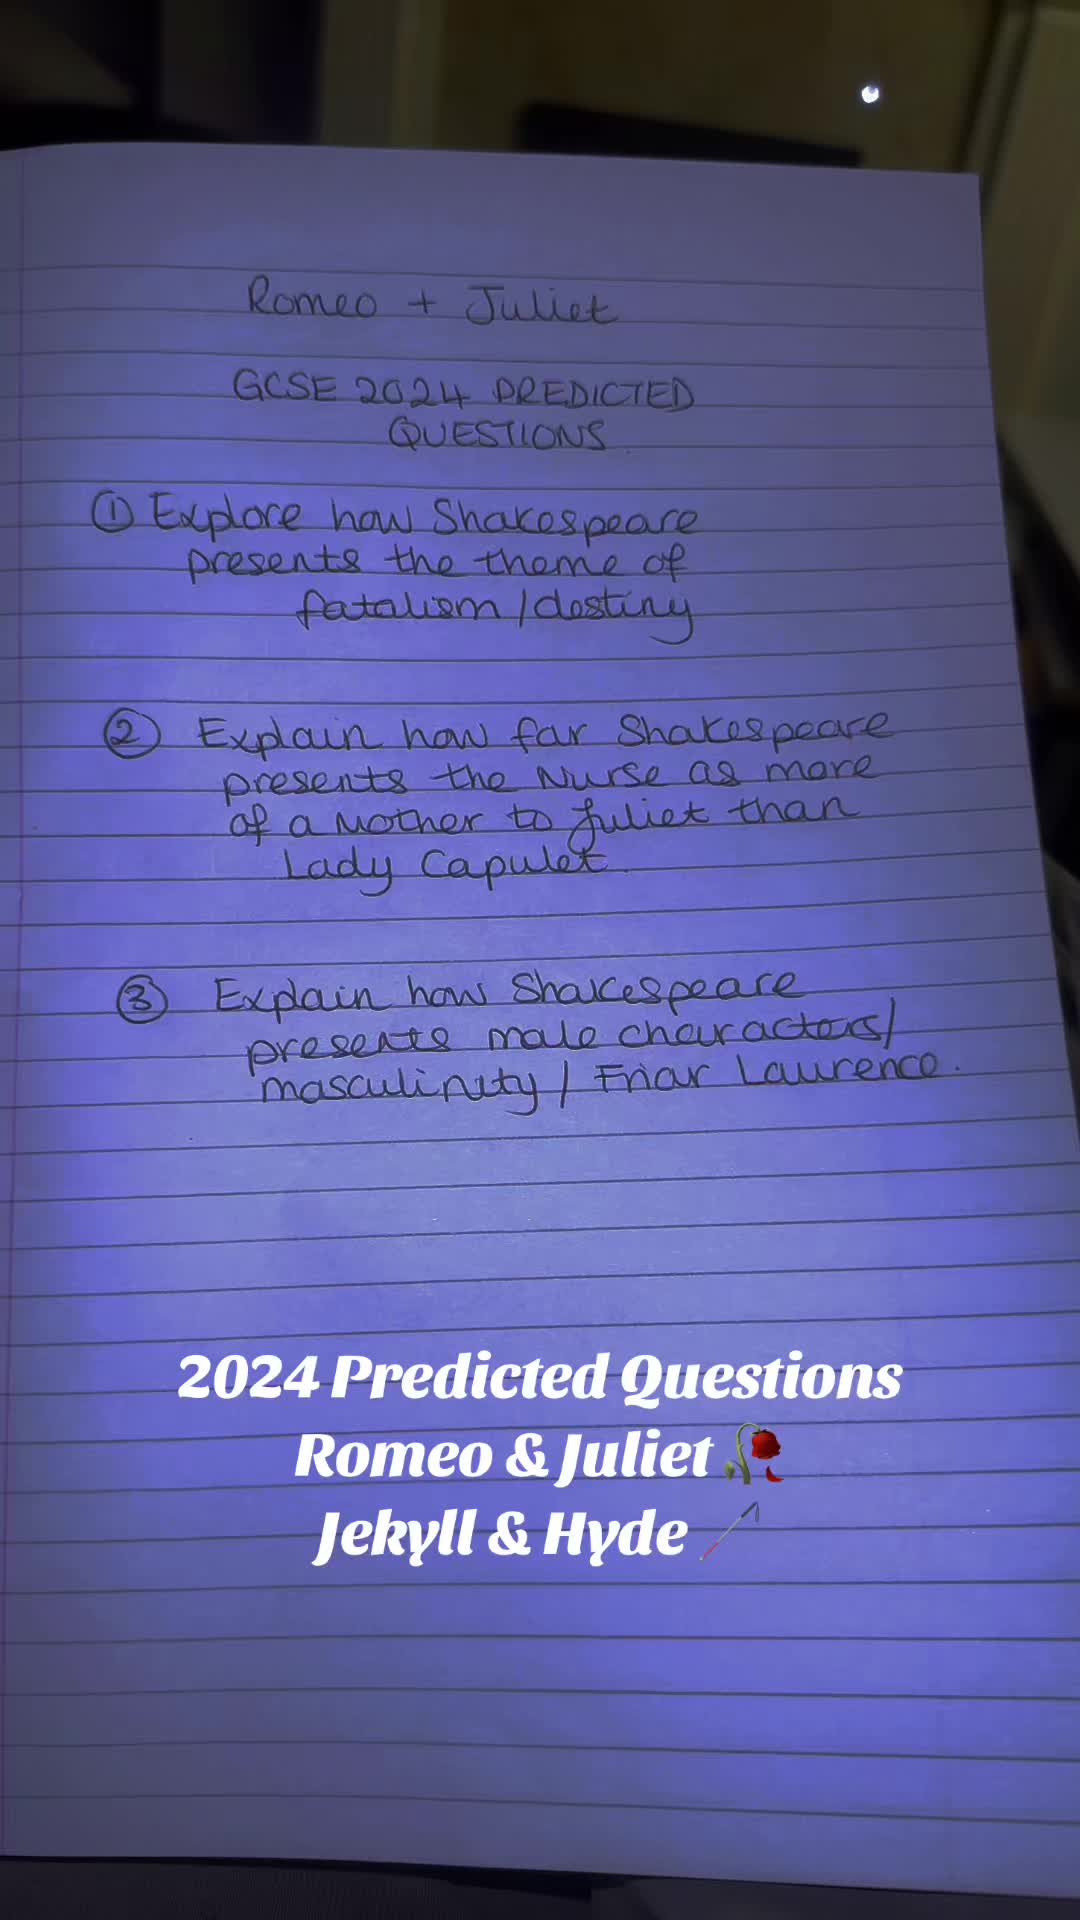 Romeo + Juliet
GCSE 2024 PREDICTED
QUESTIONS
① Explore how Shakespeare
presents the theme of
fatalism / destiny
② Explain how far Shakespeare
presents the Nurse as more
of a Mother to Juliet than
Lady Capulet.
③ Explain how Shakespeare
presents male characters/
masculinity / Friar Laurence.
2024 Predicted Questions
Romeo & Juliet 🥀
Jekyll & Hyde 🦯